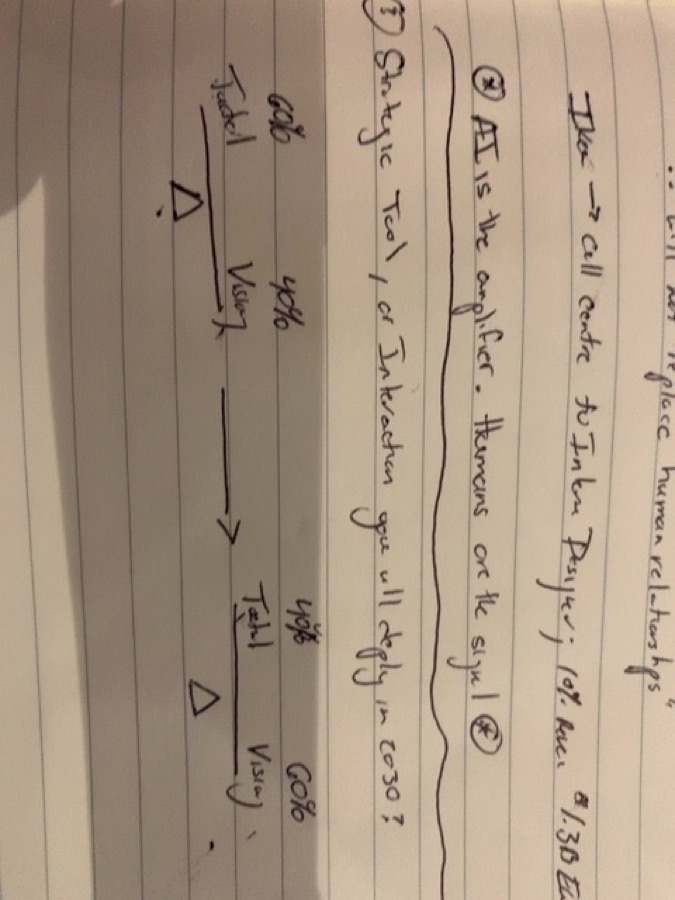 will not replace human relationships"
Ikea → Call centre to Inten Designer; 10% Rev. 1.3B
⊛ AI is the amplifier. Humans are the signal ⊛
? Strategic Tool, or Interaction you will deploy in 2030?
60% 40% 40% 60%
Δ → Δ